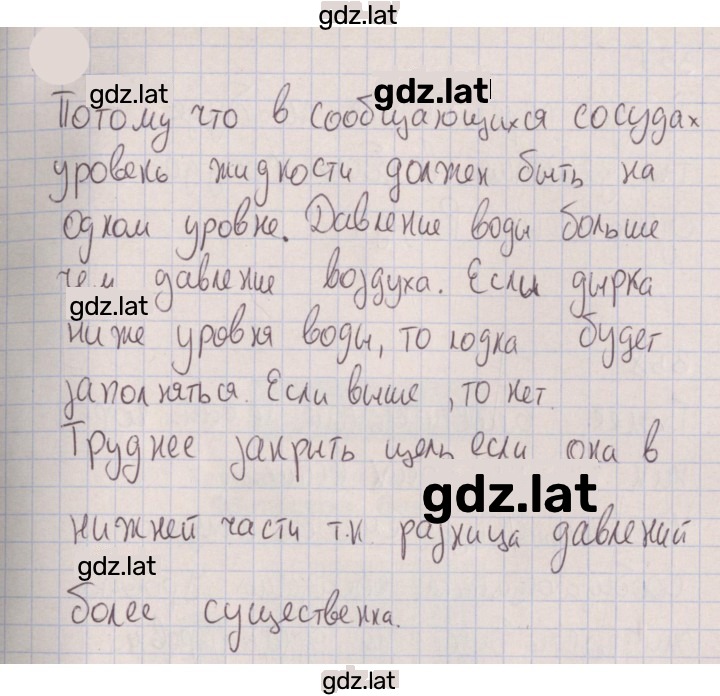 gdz.lat
gdz.lat gdz.lat
Потому что в сообщающихся сосудах
уровень жидкости должен быть на
одном уровне. Давление воды больше
чем давление воздуха. Если дырка
gdz.lat
ниже уровня воды, то лодка будет
заполняться. Если выше, то нет.
Труднее закрыть щель если она в
gdz.lat
нижней части т.к разница давлений
gdz.lat
более существенна.
gdz.lat